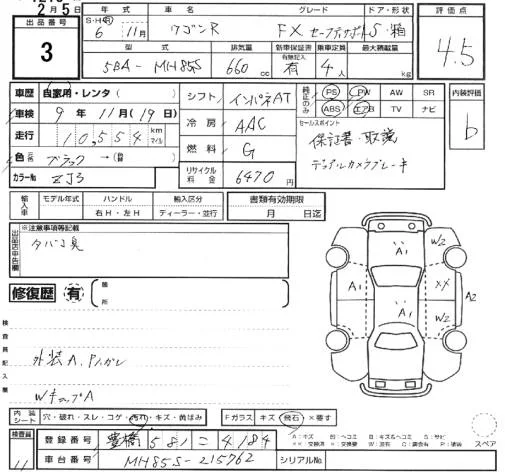 2月5日
出品番号
3
年式 車名 グレード ドア・形状
S・H・R 6年 11月 ワゴンR FX セーフティサポートS・箱
型式 排気量 新車保証書 乗車定員 最大積載量
5BA-MH85S 660cc 有無記入 有 4人 kg
評価点
4.5
車歴 自家用・レンタ( )
車検 9年 11月(19日)
走行 10,554 km マイル
色 ブラック →(替 )
カラーNo ZJ3
シフト インパネAT
冷房 AAC
燃料 G
リサイクル料金 6470円
純正のみ PS PW AW SR
ABS エアB TV ナビ
セールスポイント
保証書・取説
デュアルカメラブレーキ
内装評価
b
輸入車 モデル年式 ハンドル 輸入区分
右H・左H ディーラー・並行
書類有効期限
月 日迄
出品店申告欄
※注意事項等記載
タバコ臭
修復歴 有 箇所
検査員記入欄
外装A,P,ハガレ
WキップA
A1 W2
A1 XX A2
A1 W2
内装シート 穴・破れ・スレ・コゲ・汚れ・キズ・黄ばみ
Fガラス キズ・飛石・×要す
スペア
A:キズ E:ヘコミ B:キズ&ヘコミ S:サビ
XX:交換済 X:交換要 W:波有 C:腐食有 P:塗装
検査員 11
登録番号 豊橋 581 こ 4184
車台番号 MH85S-215762 シリアルNo